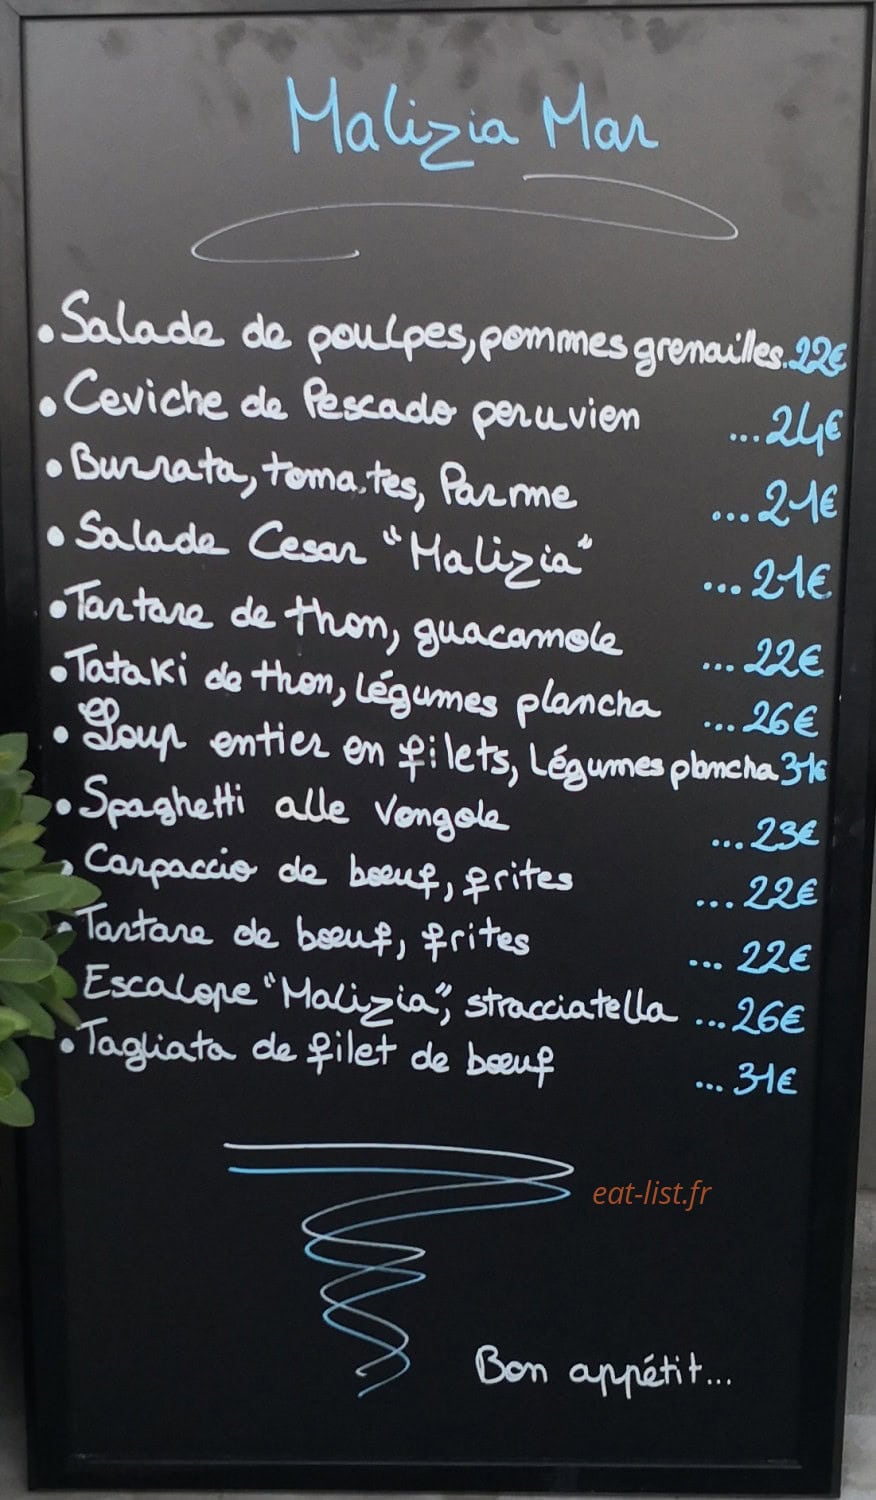 Malizia Mar
• Salade de poulpes, pommes grenailles. 22€
• Ceviche de Pescado peruvien ... 24€
• Burrata, tomates, Parme ... 21€
• Salade Cesar "Malizia" ... 21€
• Tartare de thon, guacamole ... 22€
• Tataki de thon, légumes plancha ... 26€
• Loup entier en filets, légumes plancha 31€
• Spaghetti alle Vongole ... 23€
• Carpaccio de bœuf, frites ... 22€
• Tartare de bœuf, frites ... 22€
Escalope "Malizia", stracciatella ... 26€
• Tagliata de filet de bœuf ... 31€
eat-list.fr
Bon appétit...